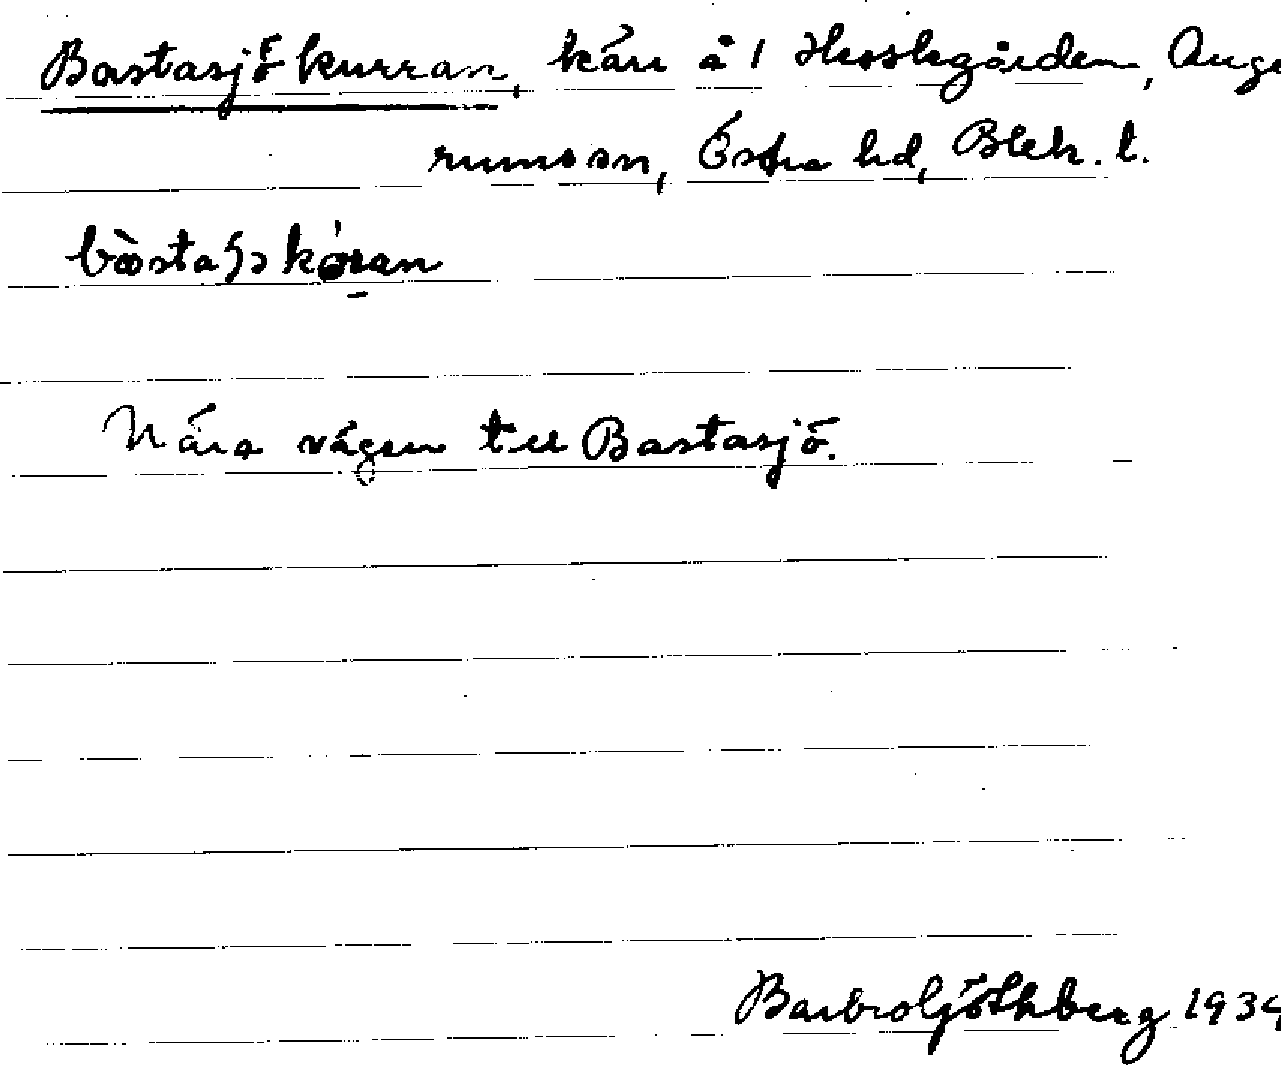 Bastasjökurran, kärr å 1 Hesslegården, Auge
rums sn, Östra hd, Blek. l.
Nära vägen till Bastasjö.
Barbro Göthberg 1934